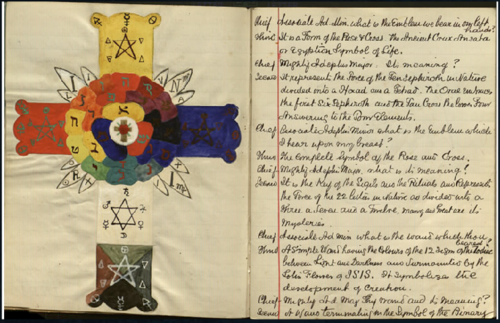 Chief Associate Ad. Min. what is the Emblem we bear in our left hands?
It is a Form of the Rose & Cross. The Ancient Crux Ansata
or Egyptian Symbol of Life.
Chief Mighty Adeptus Major. Its meaning?
It represents the Force of the Ten Sephiroth in Nature
divided into a and a Tetrad. The Oval embraces
the first six Sephiroth and the Tau Cross the lower Four
Answering to the Four Elements.
Chief Associate Adeptus Minor what is the Emblem which
I bear upon my breast?
The Complete Symbol of the Rose and Cross.
Chief Mighty Adeptus Major, what is its meaning?
It is the Key of the Sigils and the Rituals and Represents
the Force of the 22 letters in Nature as divided into a
Three a Seven and a Twelve. Many and Great are its
Mysteries.
Chief Associate Ad. Min. what is the wand which thou bearest?
A Simple Wand having the Colours of the 12 Signs of the Zodiac
between Light and Darkness and Surmounted by the
Lotus Flower of ISIS. It Symbolizes the
development of Creation.
Chief Mighty Ad. Maj. Thy wand and its Meaning?
A Wand terminating in the Symbol of the Binary